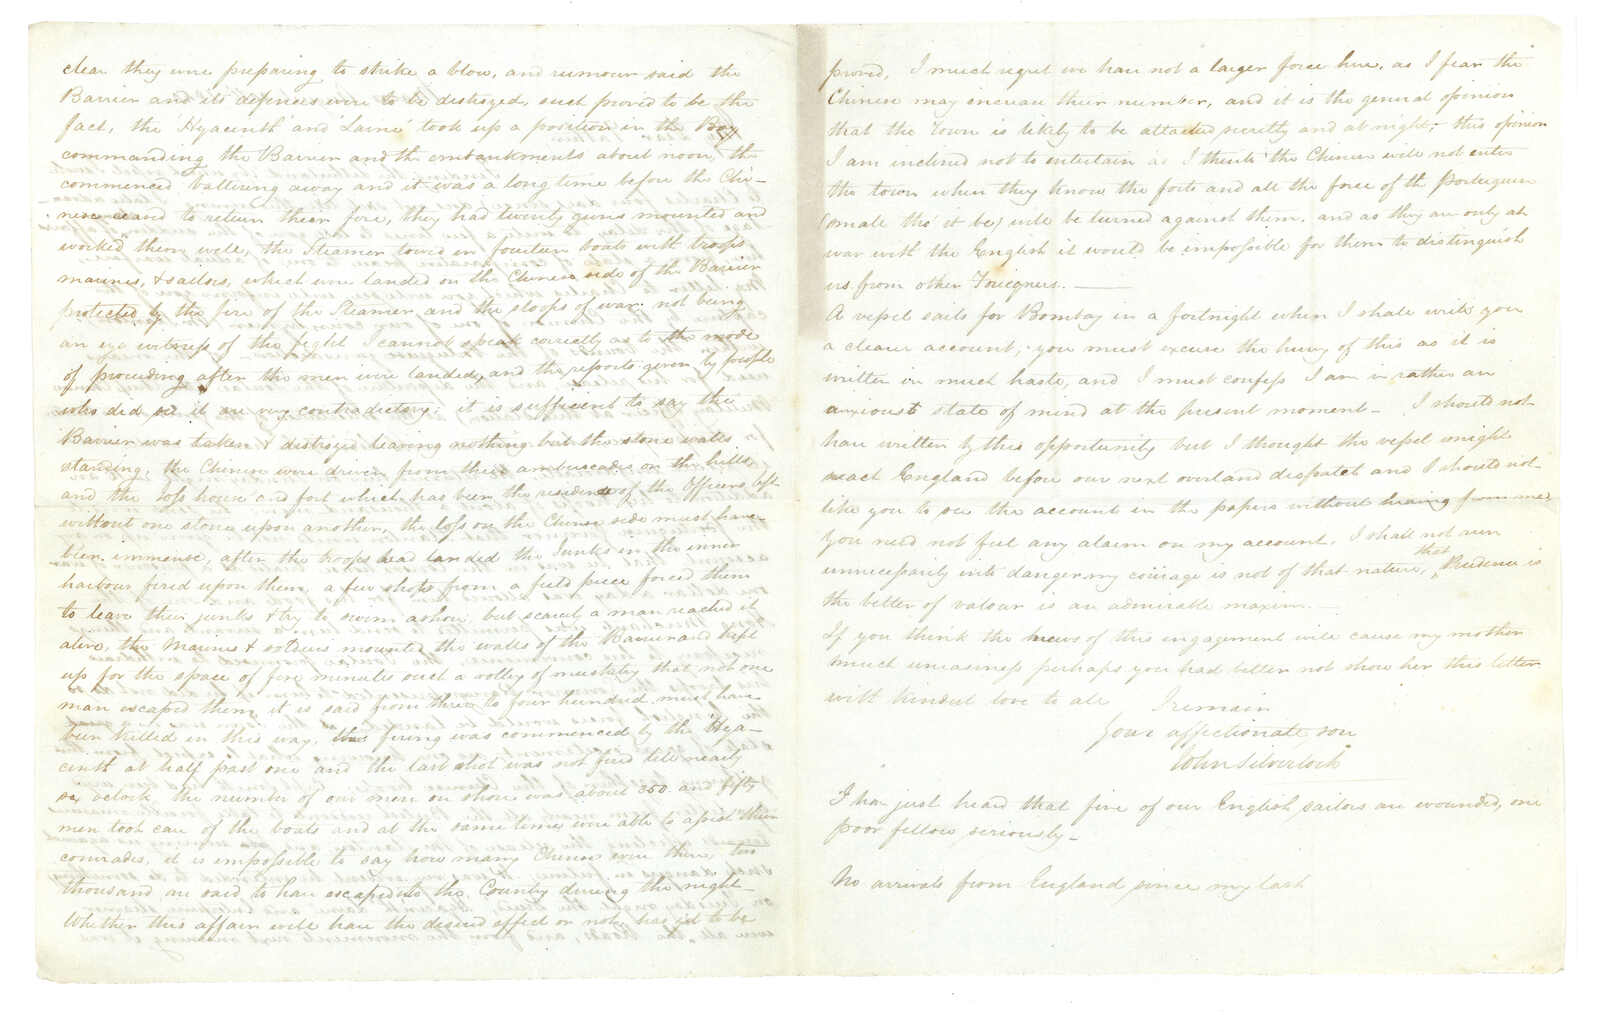 clear they were preparing to strike a blow, and rumour said the
Barrier and its defences were to be distroyed, such proved to be the
fact, the 'Hyacinth' and 'Larne' took up a position in the Bay
commanding the Barrier and the embankments about noon, the
commenced battering away and it was a long time before the Chi-
nese ceased to return their fire, they had twenty guns mounted and
worked them well, the Steamer towed in fourteen boats with troops
marines, & sailors, which were landed on the Chinese side of the Barrier
protected by the fire of the Steamer and the sloops of war. not being
an eye witness of the fight I cannot speak correctly as to the mode
of proceeding after the men were landed, and the reports given by people
who did see it are very contradictory; it is sufficient to say the
Barrier was taken & distroyed leaving nothing but the stone walls
standing, the Chinese were driven from their ambuscades on the hills,
and the Joss house and fort which has been the residence of the Officers left
without one stone upon another, the loss on the Chinese side must have
been immense, after the troops had landed the Junks in the inner
harbour fired upon them, a few shots from a field piece forced them
to leave their junks & try to swim ashore, but scarcely a man reached it
alive, the Marines & soldiers mounted the walls of the Barrier and kept
up for the space of five minutes such a volley of musketry that not one
man escaped them, it is said from three to four hundred must have
been killed in this way, this firing was commenced by the 'Hya-
cinth' at half past one and the last shot was not fired till nearly
six oclock the number of our men on shore was about 350 and fifty
men took care of the boats and at the same time were able to assist their
comrades, it is impossible to say how many Chinese were there, two
thousand are said to have escaped to the Country during the night
Whether this affair will have the desired effect or not, has yet to be
proved, I much regret we have not a larger force here, as I fear the
Chinese may increase their number, and it is the general opinion
that the town is likely to be attacked secretly and at night, this opinion
I am inclined not to entertain as I think the Chinese will not enter
the town when they know the forts and all the force of the Portuguese
(small tho' it be) will be turned against them. and as they are only at
war with the English it would be impossible for them to distinguish
us from other Foreigners. —
A vessel sails for Bombay in a fortnight when I shall write you
a clearer account, you must excuse the hurry of this as it is
written in much haste, and I must confess I am in rather an
anxious state of mind at the present moment – I should not
have written by this opportunity but I thought the vessel might
reach England before our next overland dispatch and I should not
like you to see the account in the papers without hearing from me,
You need not feel any alarm on my account, I shall not run
unnecessarily into danger, my courage is not of that nature, that Prudence is
the better of valour is an admirable maxim. —
If you think the news of this engagement will cause my mother
much uneasiness perhaps you had better not show her this letter
with kindest love to all I remain
Your affectionate son
John Silverlock
I have just heard that five of our English sailors are wounded, one
poor fellow, seriously –
No arrivals from England since my last